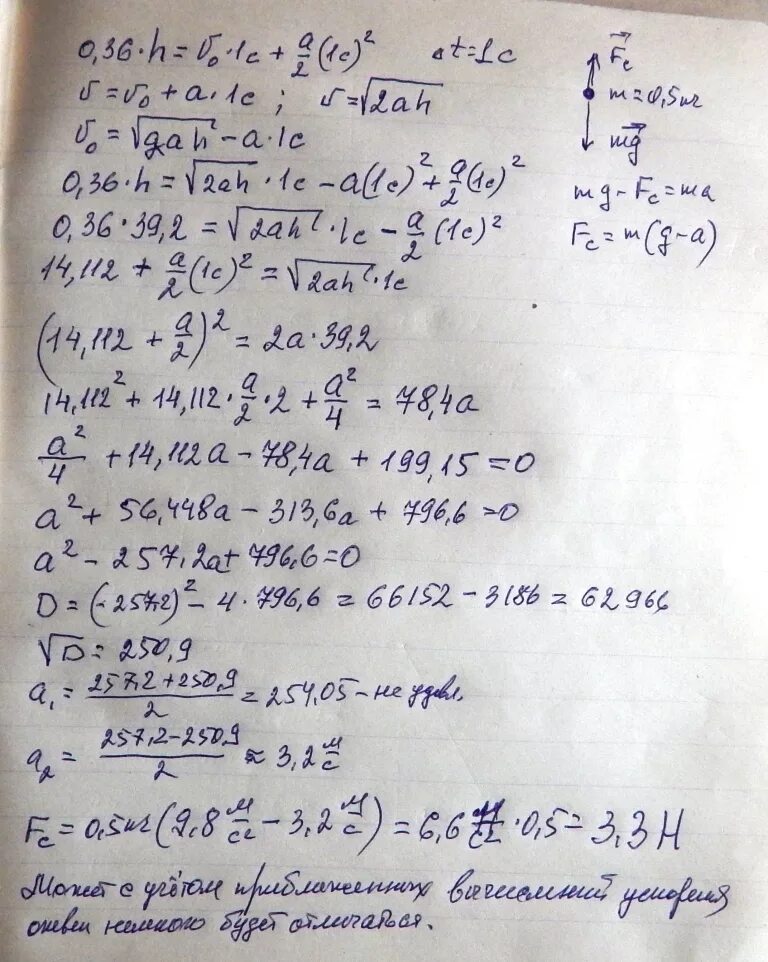 0,36·h = v₀·1c + a/2 (1c)² Δt=1c
v = v₀ + a·1c ; v = √2ah
v₀ = √2ah - a·1c
0,36·h = √2ah · 1c - a(1c)² + a/2 (1c)²
0,36·39,2 = √2ah · 1c - a/2 (1c)²
14,112 + a/2 (1c)² = √2ah · 1c
(14,112 + a/2)² = 2a·39,2
14,112² + 14,112·a/2·2 + a²/4 = 78,4a
a²/4 + 14,112a - 78,4a + 199,15 = 0
a² + 56,448a - 313,6a + 796,6 = 0
a² - 257,2a + 796,6 = 0
D = (-257,2)² - 4·796,6 = 66152 - 3186 = 62966
√D = 250,9
a₁ = (257,2+250,9)/2 = 254,05 - не удовл.
a₂ = (257,2-250,9)/2 ≈ 3,2 м/с
Fc = 0,5кг (9,8 м/с² - 3,2 м/с) = 6,6 м/с² · 0,5 = 3,3 Н
Может с учётом приближенных вычислений ускорения
ответ немного будет отличаться.
F⃗c
m = 0,5кг
mg⃗
mg - Fc = ma
Fc = m(g-a)